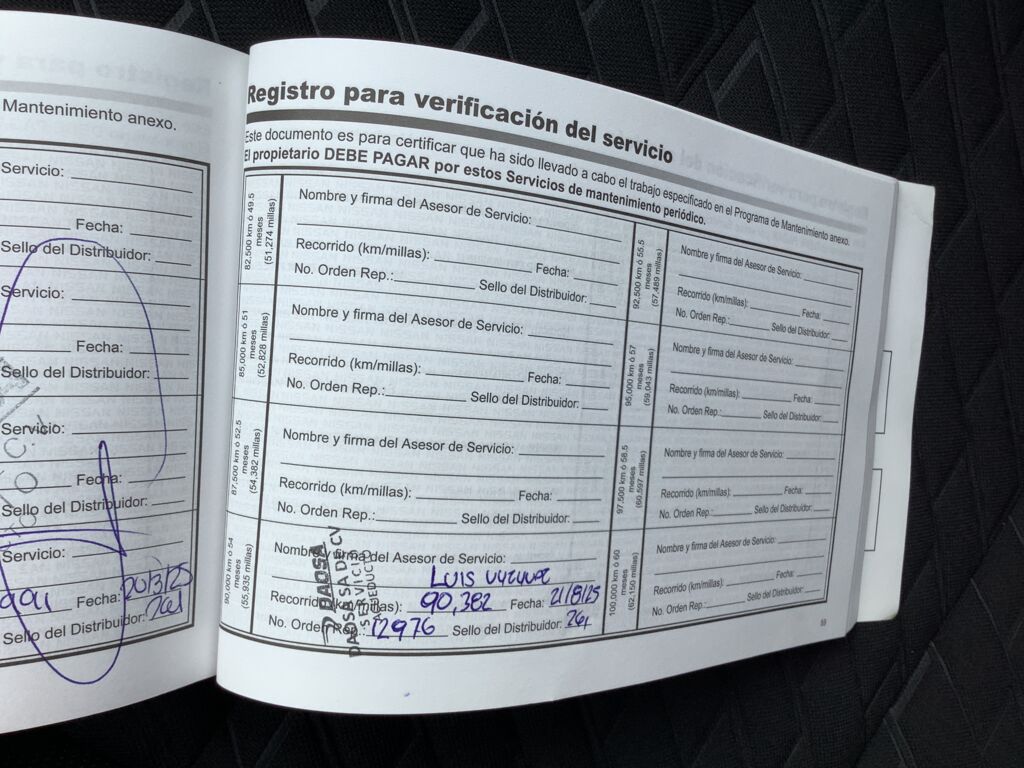 Mantenimiento anexo.
Servicio:
Fecha:
Sello del Distribuidor:
Servicio:
Fecha:
Sello del Distribuidor:
Servicio:
Fecha:
Sello del Distribuidor:
Servicio:
Fecha: 20/3/25
Sello del Distribuidor:
Registro para verificación del servicio
Este documento es para certificar que ha sido llevado a cabo el trabajo especificado en el Programa de Mantenimiento anexo.
El propietario DEBE PAGAR por estos Servicios de mantenimiento periódico.
82,500 km ó 49.5
meses
(51,274 millas)
Nombre y firma del Asesor de Servicio:
Recorrido (km/millas): Fecha:
No. Orden Rep.: Sello del Distribuidor:
85,000 km ó 51
meses
(52,828 millas)
Nombre y firma del Asesor de Servicio:
Recorrido (km/millas): Fecha:
No. Orden Rep.: Sello del Distribuidor:
87,500 km ó 52.5
meses
(54,382 millas)
Nombre y firma del Asesor de Servicio:
Recorrido (km/millas): Fecha:
No. Orden Rep.: Sello del Distribuidor:
90,000 km ó 54
meses
(55,935 millas)
Nombre y firma del Asesor de Servicio:
LUIS
Recorrido (km/millas): 90,382 Fecha: 21/8/25
No. Orden Rep.: 12976 Sello del Distribuidor:
DAOSA
DAOSA SA DE CV
SERVICIO
92,500 km ó 55.5
meses
(57,489 millas)
Nombre y firma del Asesor de Servicio:
Recorrido (km/millas): Fecha:
No. Orden Rep.: Sello del Distribuidor:
95,000 km ó 57
meses
(59,043 millas)
Nombre y firma del Asesor de Servicio:
Recorrido (km/millas): Fecha:
No. Orden Rep.: Sello del Distribuidor:
97,500 km ó 58.5
meses
(60,597 millas)
Nombre y firma del Asesor de Servicio:
Recorrido (km/millas): Fecha:
No. Orden Rep.: Sello del Distribuidor:
100,000 km ó 60
meses
(62,150 millas)
Nombre y firma del Asesor de Servicio:
Recorrido (km/millas): Fecha:
No. Orden Rep.: Sello del Distribuidor: